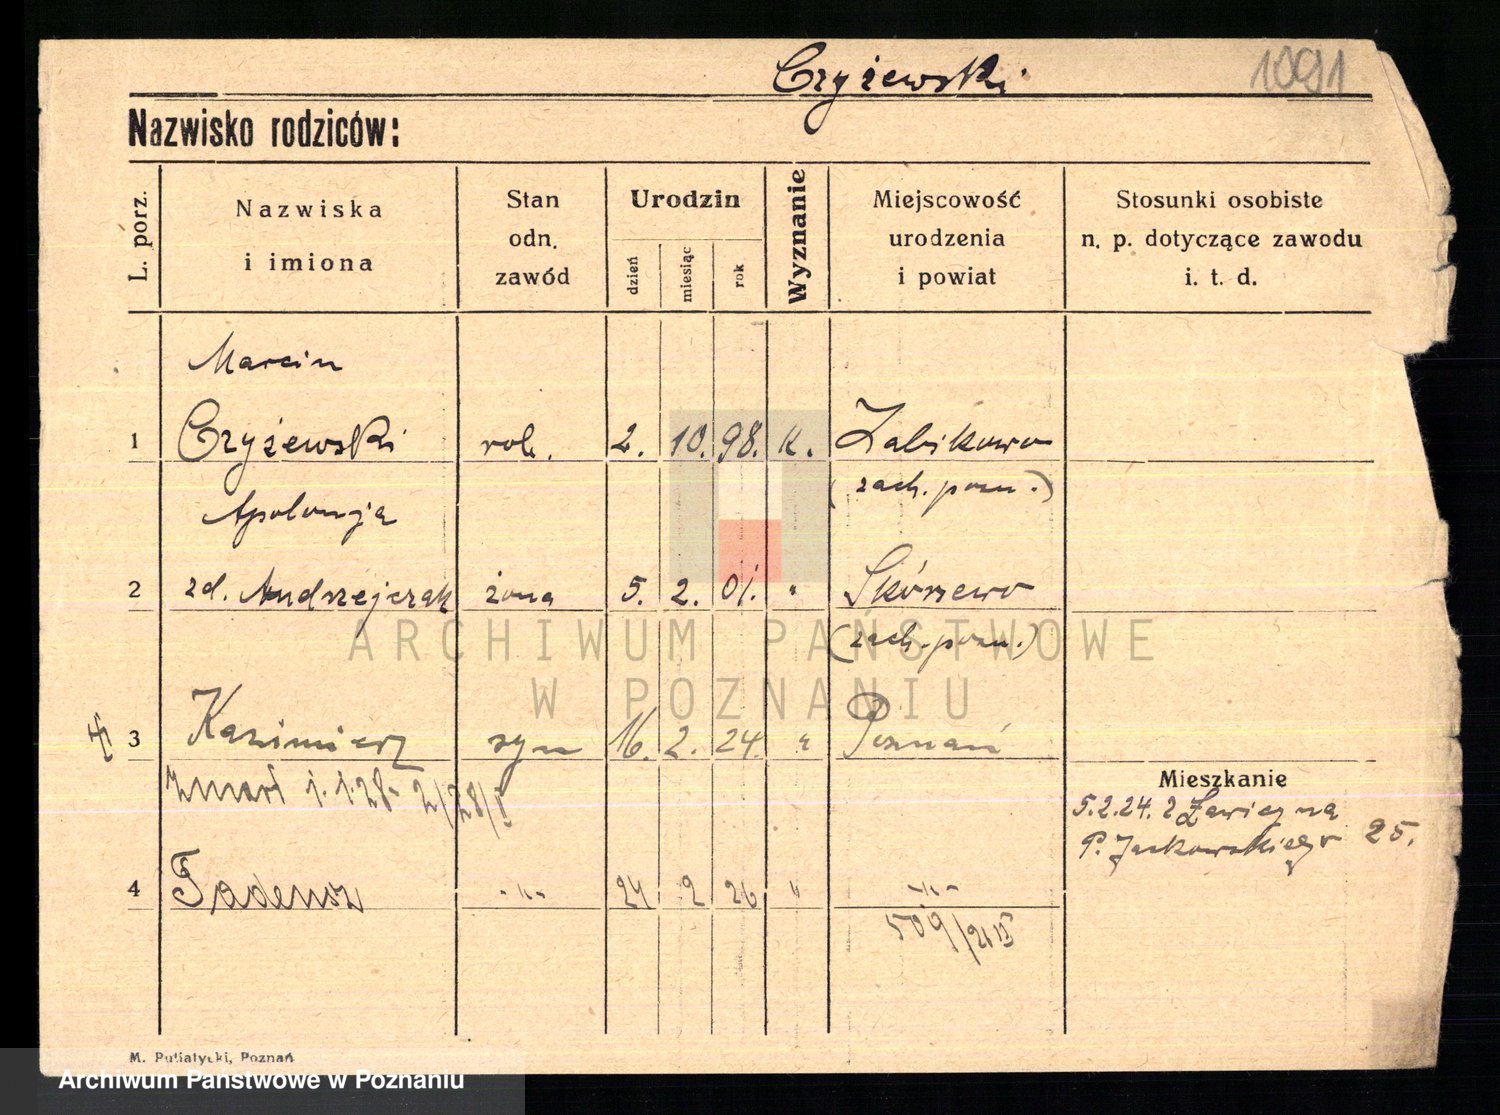 Czyżewski
1091
Nazwisko rodziców:
L. porz.
Nazwiska
i imiona
Stan
odn.
zawód
Urodzin
dzień
miesiąc
rok
Wyznanie
Miejscowość
urodzenia
i powiat
Stosunki osobiste
n. p. dotyczące zawodu
i. t. d.
Marcin
1 Czyżewski rob. 2. 10. 98. K. Żabikowo
(zach. pozn.)
Apolonja
2 zd. Andrzejczak żona 5. 2. 01. " Skórzewo
(zach. pozn.)
ARCHIWUM PAŃSTWOWE
W POZNANIU
3 Kazimierz syn 16. 2. 24. " Poznań
zmarł 1.1.28 - 2/28/I
Mieszkanie
5.2.24. z Ławicy na
P. Jackowskiego 25.
4 Tadeusz -"- 24 2 26 " -"-
509/21
M. Putiatycki, Poznań
Archiwum Państwowe w Poznaniu